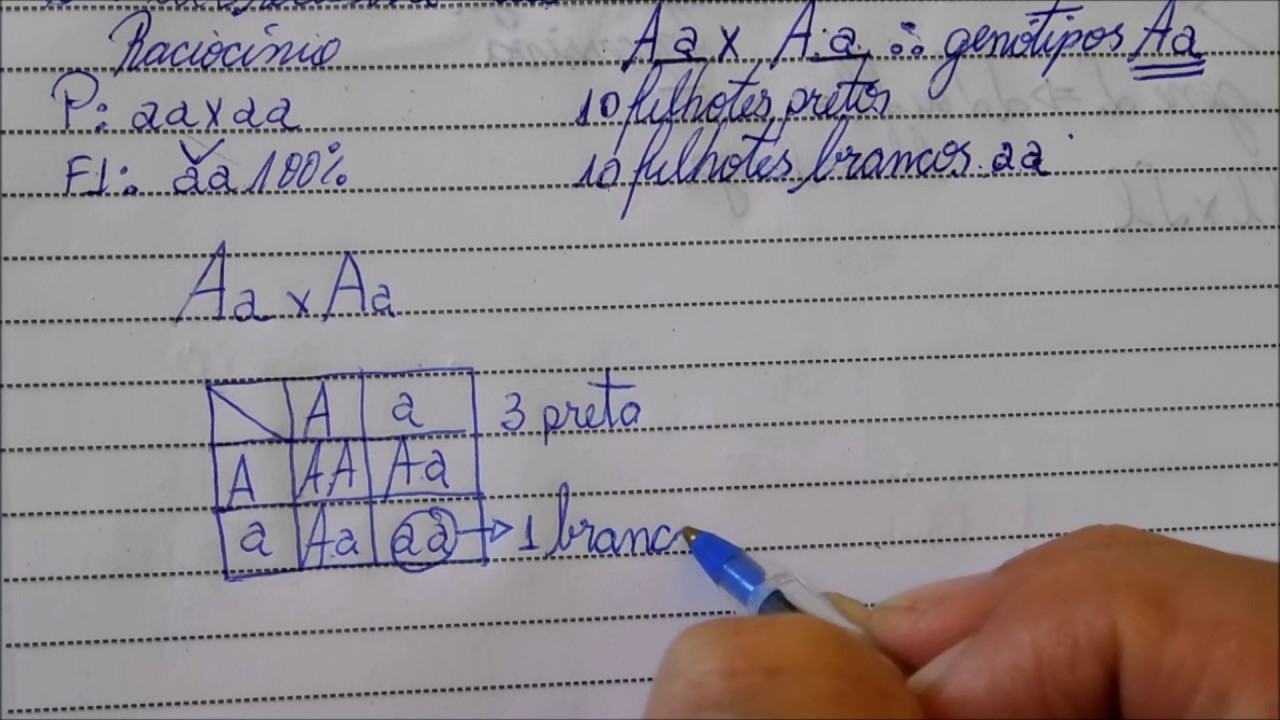 Raciocínio
P: aa x aa
F1: aa 100%
Aa x Aa ∴ genótipos Aa
10 filhotes pretos
10 filhotes brancos aa
Aa x Aa
A a
A AA Aa
a Aa aa
3 preta
1 branc